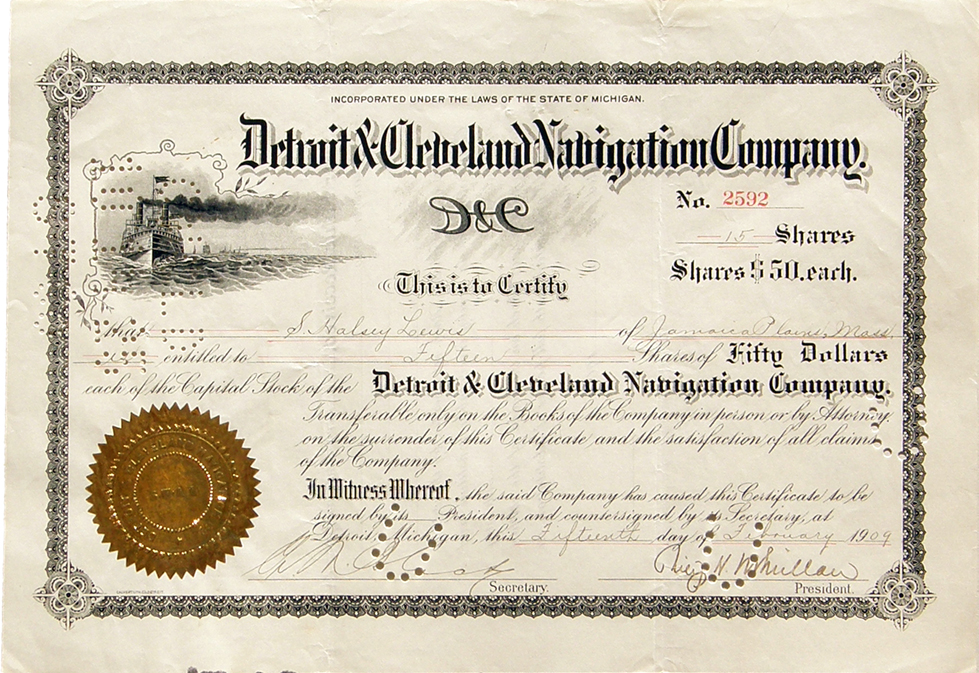 INCORPORATED UNDER THE LAWS OF THE STATE OF MICHIGAN.
Detroit & Cleveland Navigation Company.
D&C
No. 2592
15 Shares
Shares $50. each.
This is to Certify
that S. Halsey Lewis of Jamaica Plains, Mass
is entitled to Fifteen Shares of Fifty Dollars
each of the Capital Stock of the Detroit & Cleveland Navigation Company.
Transferable only on the Books of the Company in person or by Attorney
on the surrender of this Certificate and the satisfaction of all claims
of the Company.
In Witness Whereof, the said Company has caused this Certificate to be
signed by its President, and countersigned by its Secretary, at
Detroit, Michigan, this Fifteenth day of February 1909
Philip H McMillan
Secretary. President.